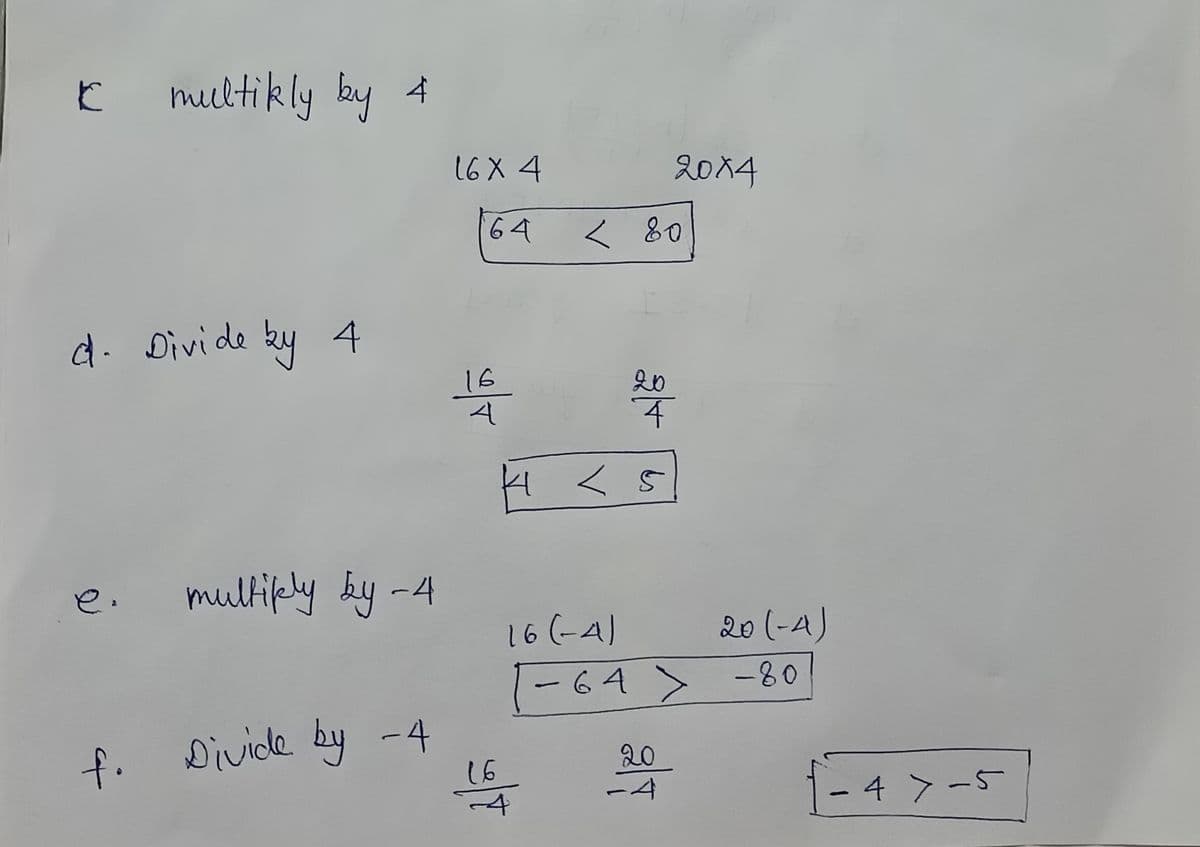 c multikly by 4
16 X 4 20X4
64 < 80
d. Divide by 4
16/4 20/4
4 < 5
e. multiply by -4
16 (-4) 20 (-4)
-64 > -80
f. Divide by -4
16/-4 20/-4 -4 > -5